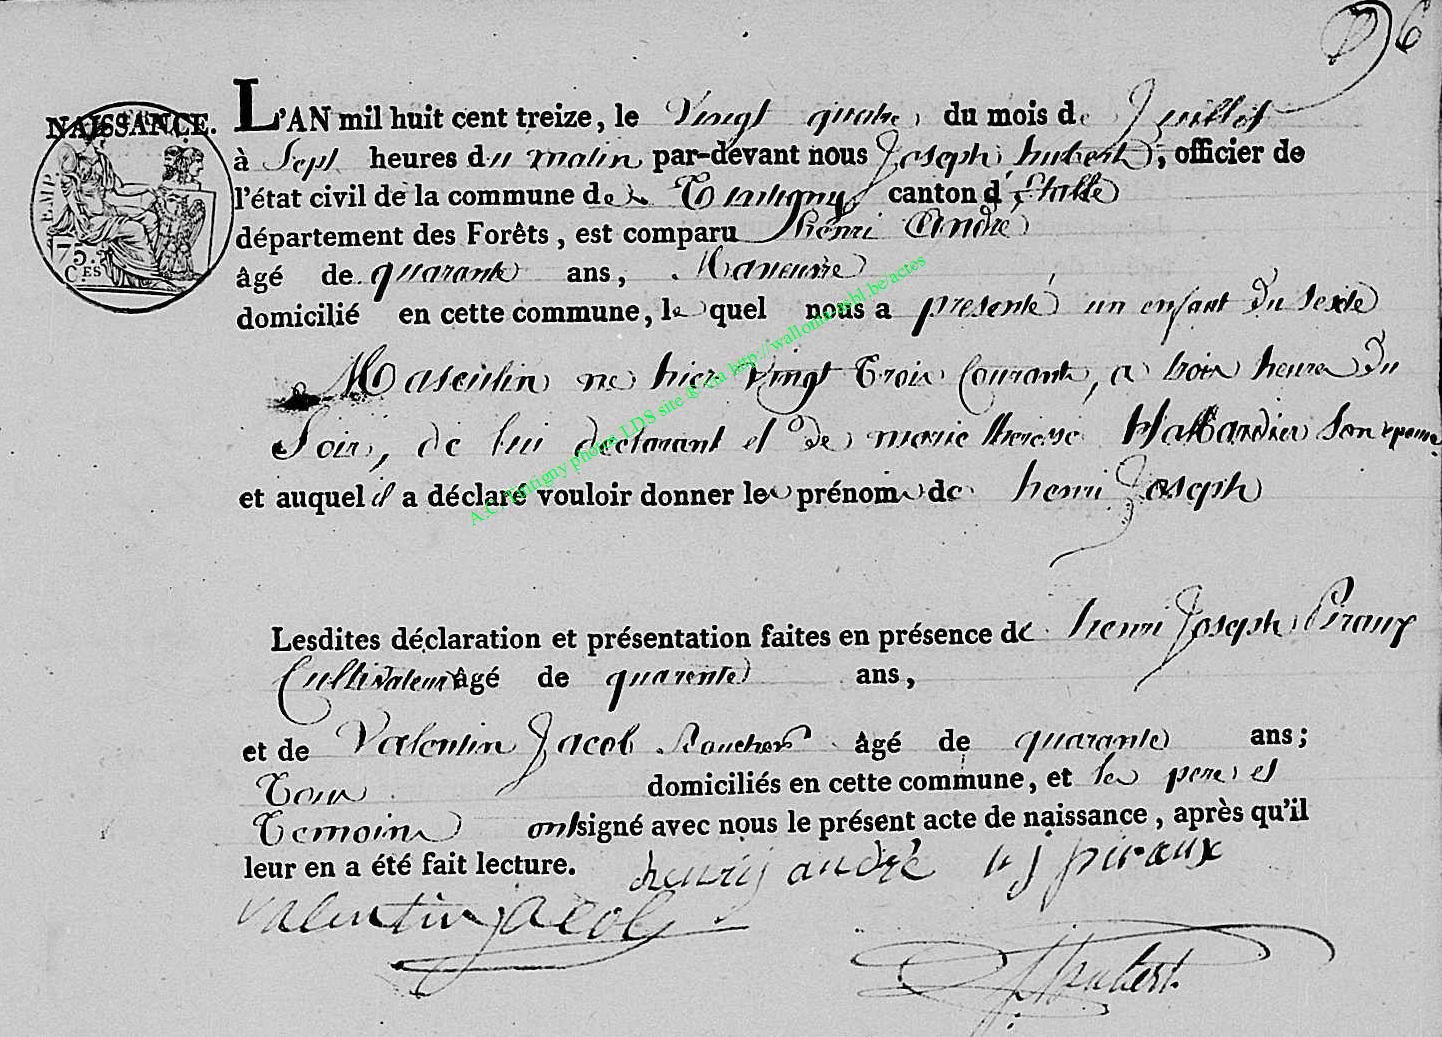 96
NAISSANCE.
EMP.
75.
CES
L'AN mil huit cent treize, le Vingt quatre du mois de Juillet
à Sept heures du matin par-devant nous Joseph hubert, officier de
l'état civil de la commune de Tintigny canton d'Etalle
département des Forêts, est comparu henri André
âgé de quarante ans, Maneuvre
domicilié en cette commune, le quel nous a presenté un enfant du sexte
Masculin ne hier Vingt trois Courant, a trois heures du
Soir, de lui declarant et de marie therese Son epouse
et auquel il a déclaré vouloir donner les prénoms de henri Joseph
Lesdites déclaration et présentation faites en présence de henri Joseph Piraux
Cultivateur âgé de quarente ans,
et de Valentin Jacob âgé de quarante ans;
Tous domiciliés en cette commune, et les pere et
Temoins ont signé avec nous le présent acte de naissance, après qu'il
leur en a été fait lecture. henry andré h j piraux
valentin jacob
J hubert
A.C. Tintigny photos LDS site ® via http://wallonia-asbl.be/actes